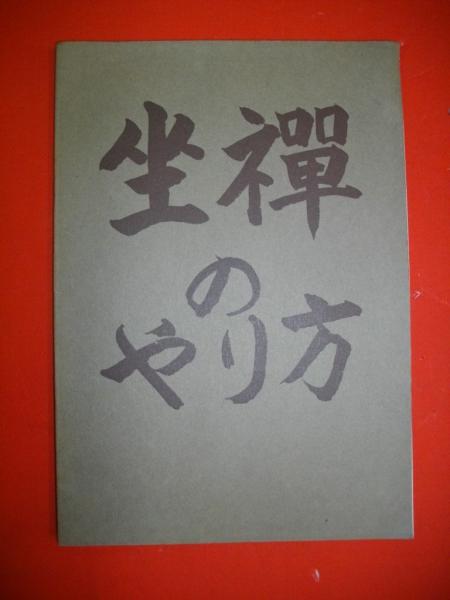 坐禪
の
やり方